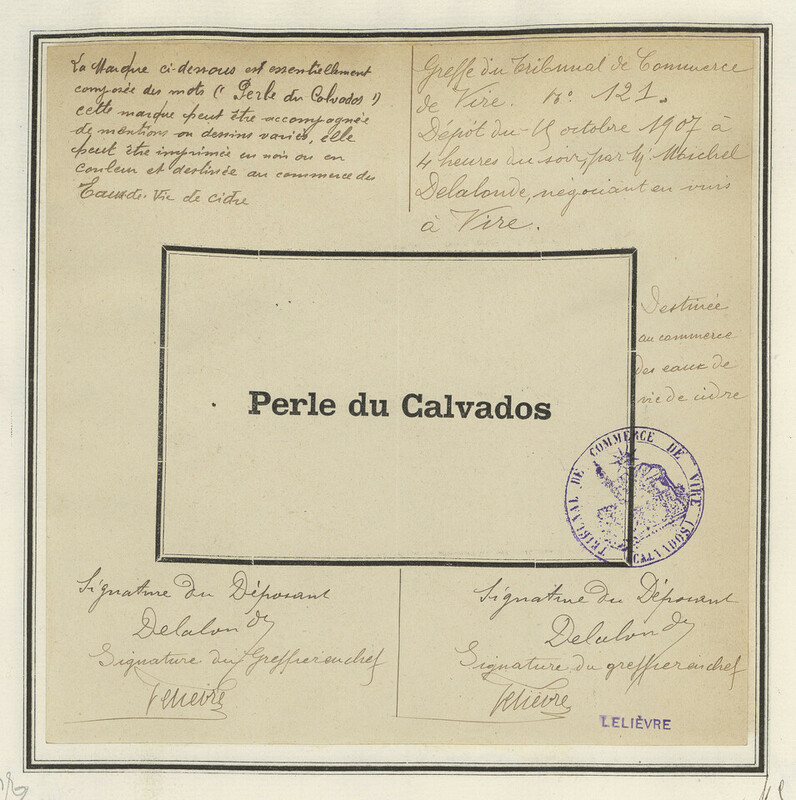 La Marque ci-dessous est essentiellement
composée des mots (" Perle du Calvados ")
cette marque peut être accompagnée
de mentions ou dessins variés, elle
peut être imprimée en noir ou en
couleur et destinée au commerce des
Eaux-de-Vie de cidre
Greffe du Tribunal de Commerce
de Vire. No. 121.
Dépôt du octobre 1907 à
4 heures du soir, par M Michel
Delalonde, négociant en vins
à Vire.
Destinée
au commerce
des eaux de
vie de cidre
Perle du Calvados
TRIBUNAL DE COMMERCE DE VIRE (CALVADOS)
Signature du Déposant
Delalonde
Signature du Greffier en chef
Lelièvre
Signature du Déposant
Delalonde
Signature du greffier en chef
Lelièvre
LELIÈVRE